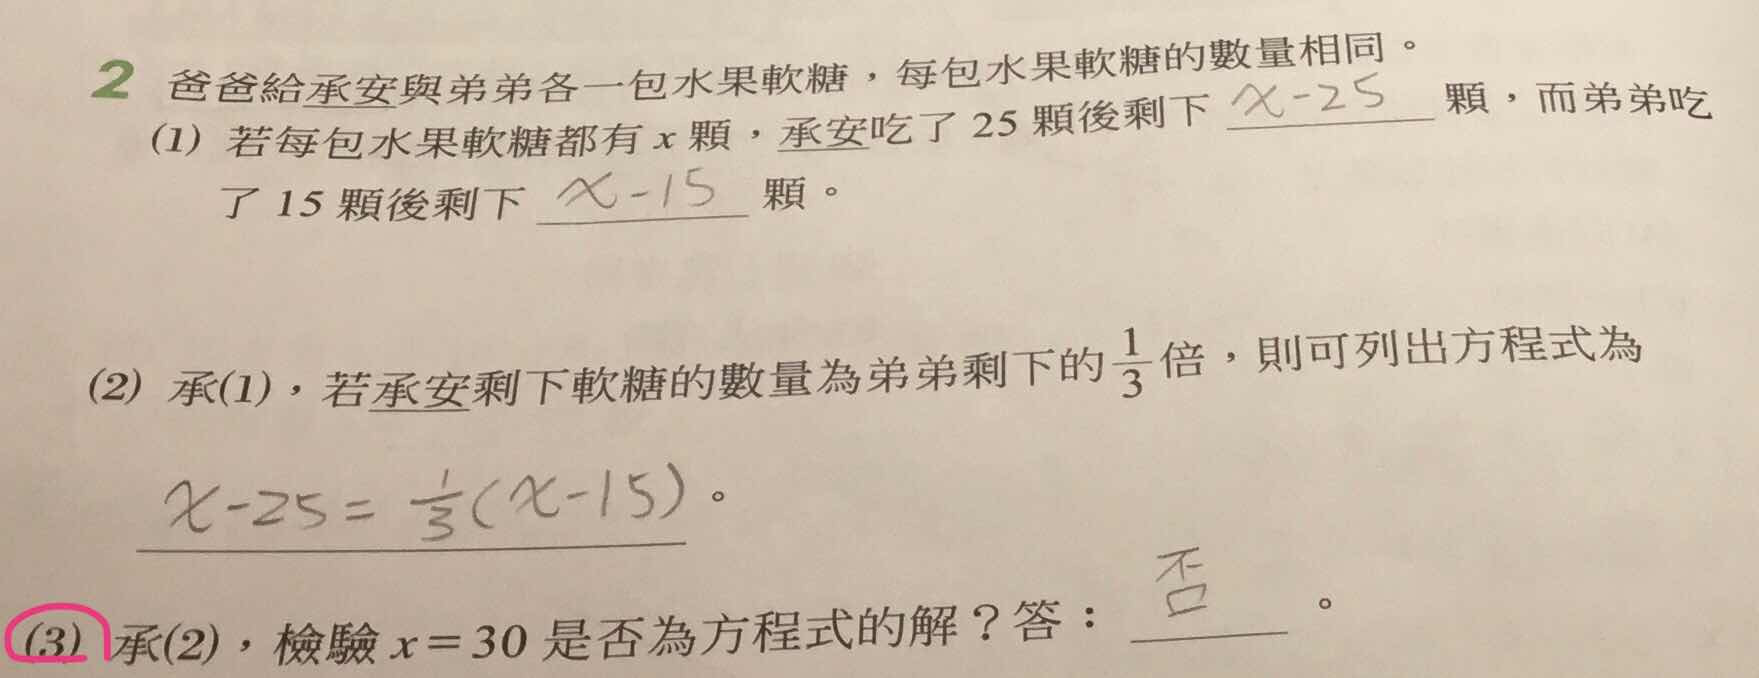 2 爸爸給承安與弟弟各一包水果軟糖，每包水果軟糖的數量相同。
(1) 若每包水果軟糖都有 x 顆，承安吃了 25 顆後剩下 x-25 顆，而弟弟吃
了 15 顆後剩下 x-15 顆。
(2) 承(1)，若承安剩下軟糖的數量為弟弟剩下的 1/3 倍，則可列出方程式為
x-25=1/3(x-15)。
(3) 承(2)，檢驗 x=30 是否為方程式的解？答：否。